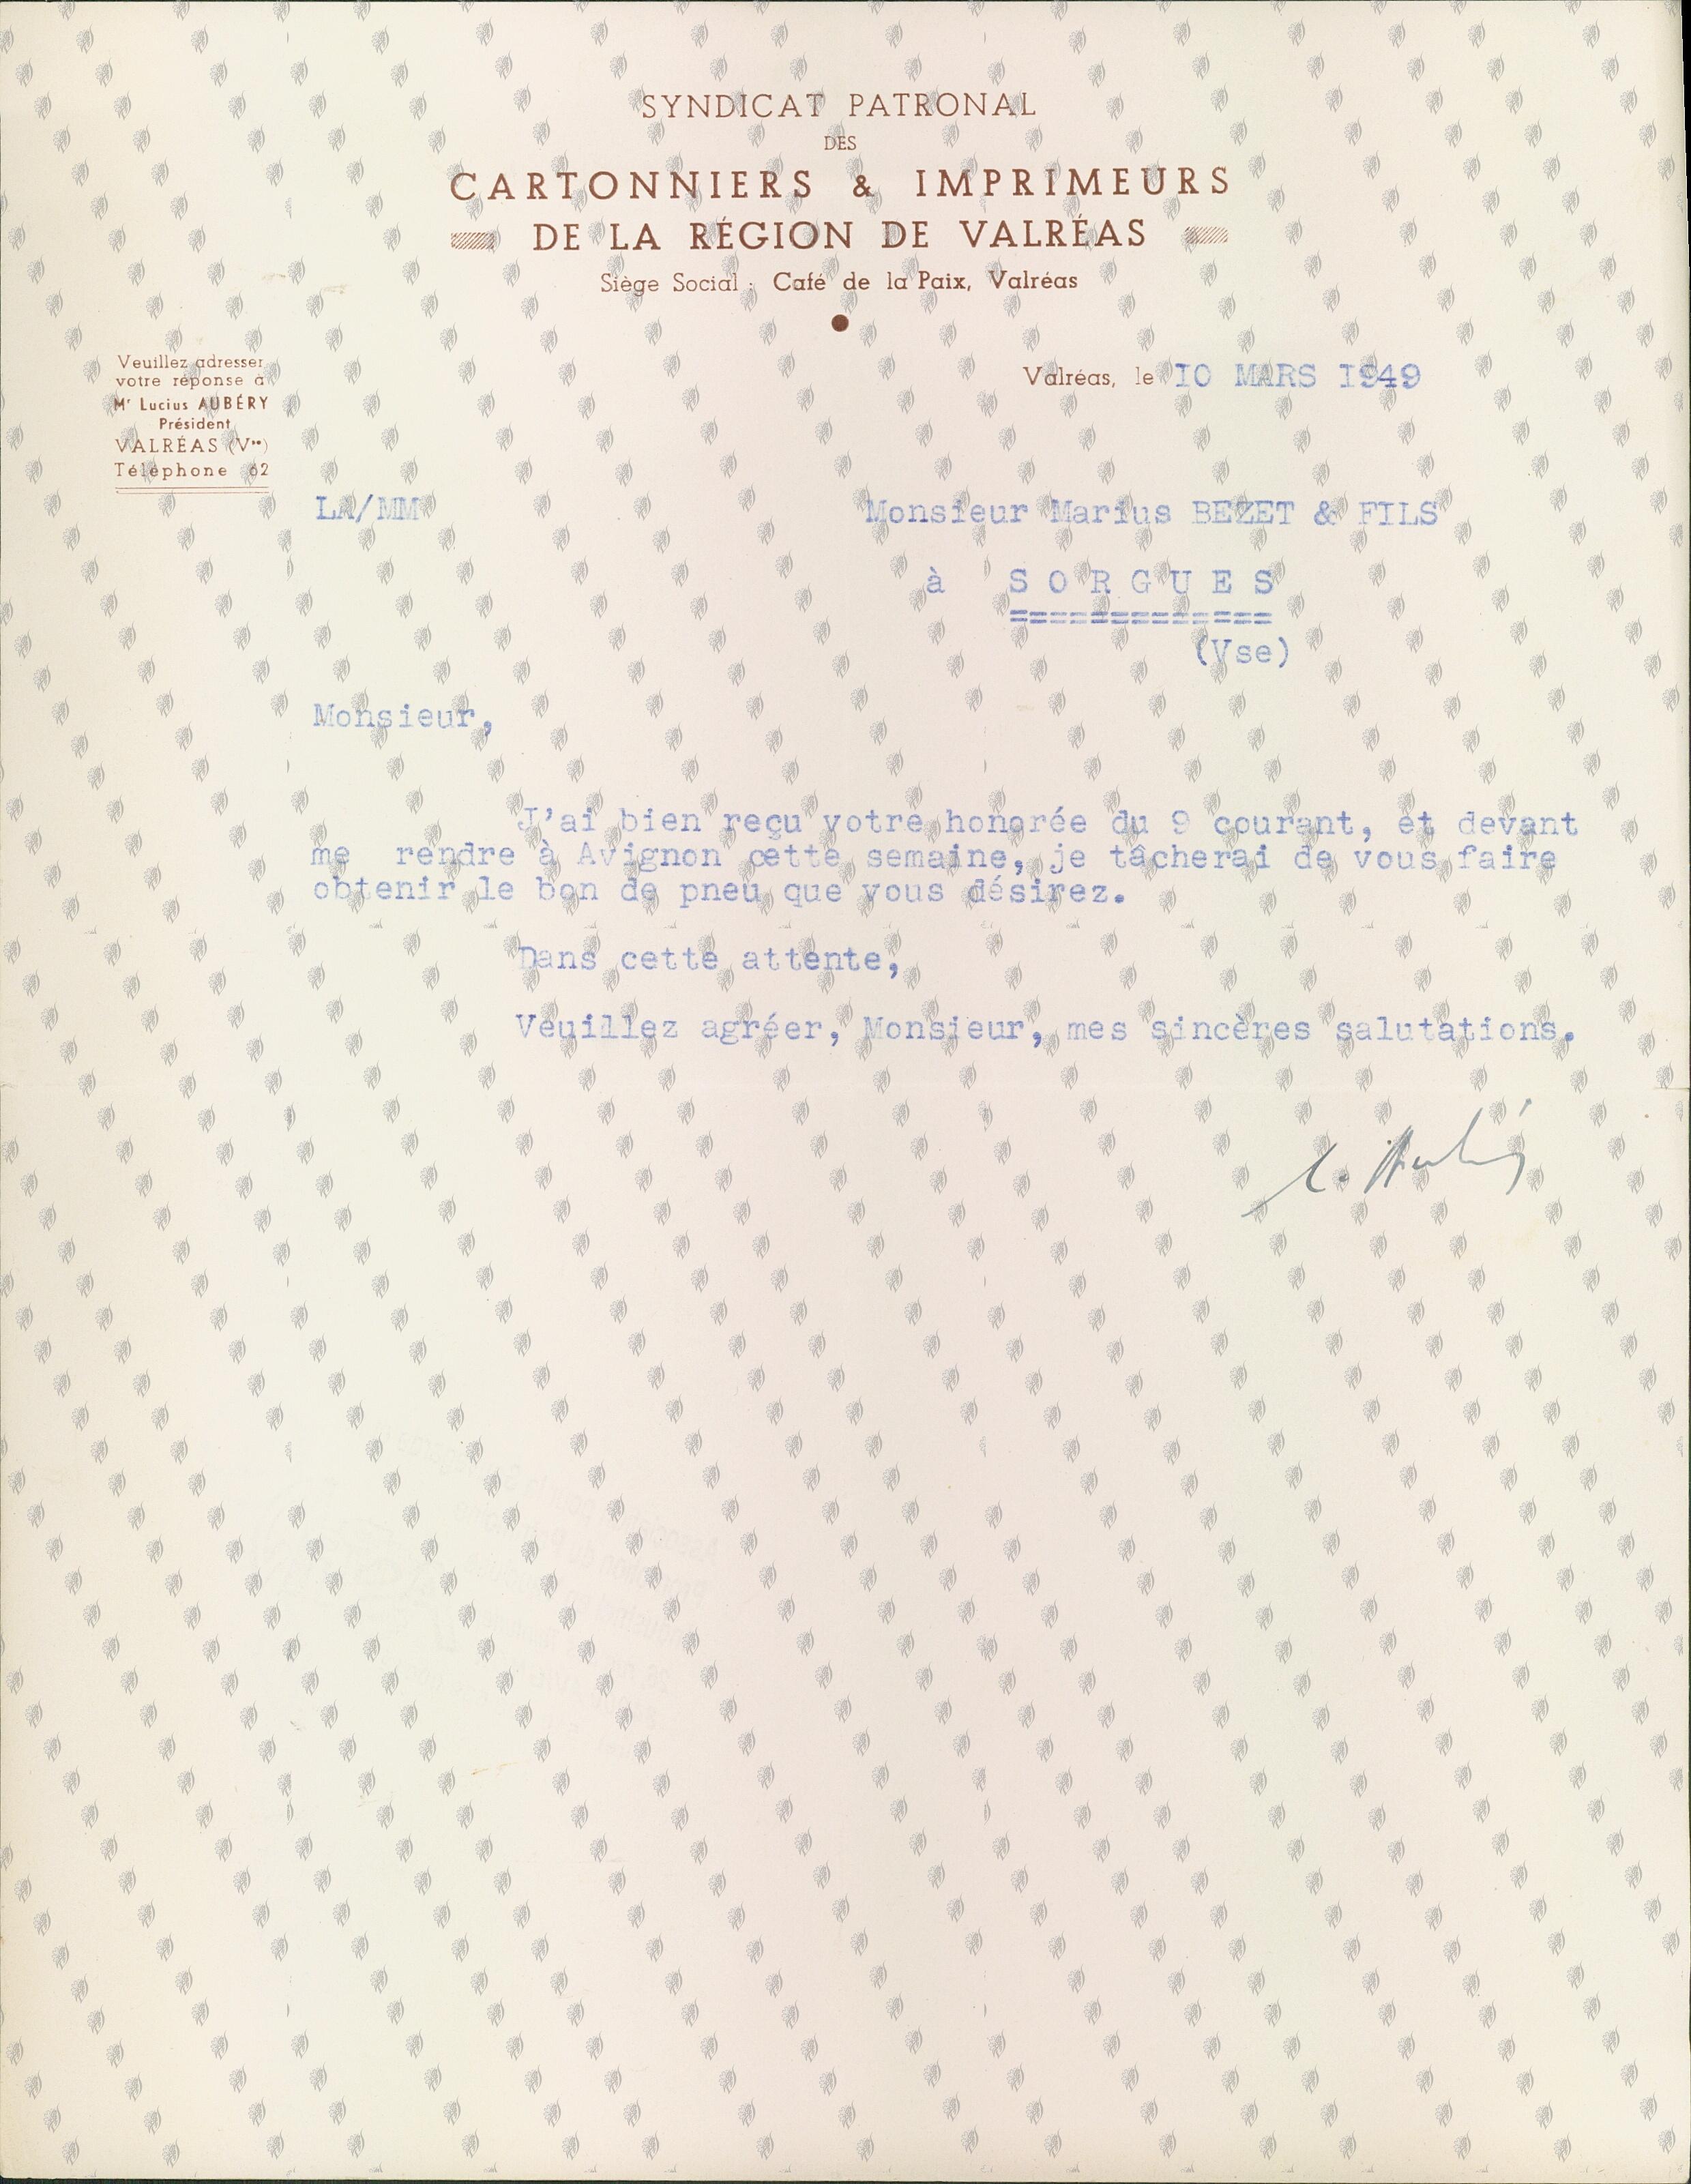 SYNDICAT PATRONAL
DES
CARTONNIERS & IMPRIMEURS
DE LA RÉGION DE VALRÉAS
Siège Social : Café de la Paix, Valréas
Veuillez adresser
votre réponse à
Mr Lucius AUBÉRY
Président
VALRÉAS (Vse)
Téléphone 62
Valréas, le 10 MARS 1949
LA/MM
Monsieur Marius BEZET & FILS
à S O R G U E S
=============
(Vse)
Monsieur,
J'ai bien reçu votre honorée du 9 courant, et devant
me rendre à Avignon cette semaine, je tâcherai de vous faire
obtenir le bon de pneu que vous désirez.
Dans cette attente,
Veuillez agréer, Monsieur, mes sincères salutations.
L. Aubéry